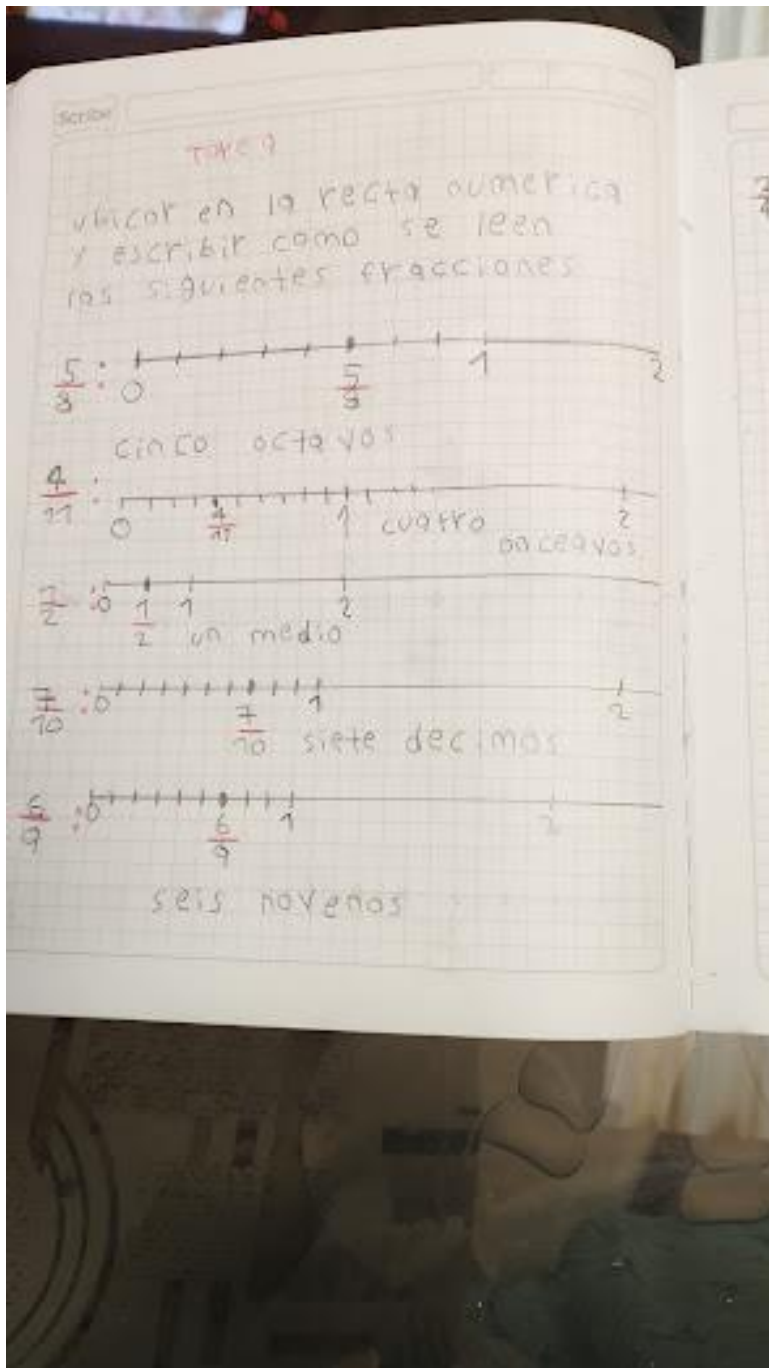 Scribe
Tarea
ubicar en la recta numerica
y escribir como se leen
las siguientes fracciones
5/8: 0 5/8 1 2
cinco octavos
4/11: 0 4/11 1 2
cuatro onceavos
1/2: 0 1/2 1 2
un medio
7/10: 0 7/10 1 2
siete decimos
6/9: 0 6/9 1 2
seis novenos